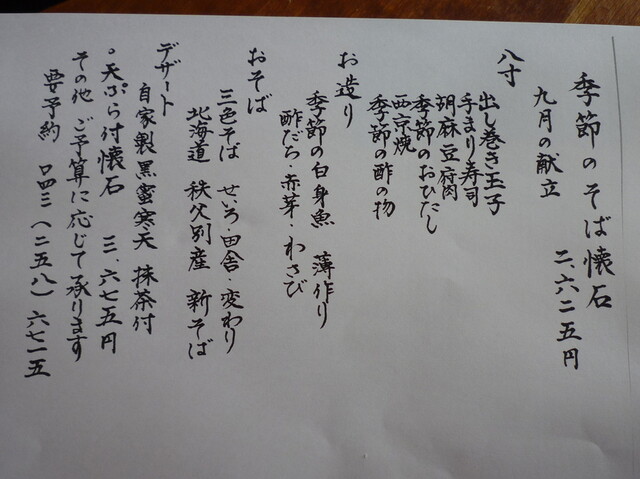 季節のそば懐石
二.六二五円
九月の献立
八寸
出し巻き玉子
手まり寿司
胡麻豆腐
季節のおひたし
西京焼
季節の酢の物
お造り
季節の白身魚 薄作り
酢だち・赤芽・わさび
おそば
三色そば せいろ・田舎・変わり
北海道 秩父別産 新そば
デザート
自家製黒蜜寒天 抹茶付
。天ぷら付懐石 三.六七五円
その他 ご予算に応じて承ります
要予約 〇四三(二五八)六七一五